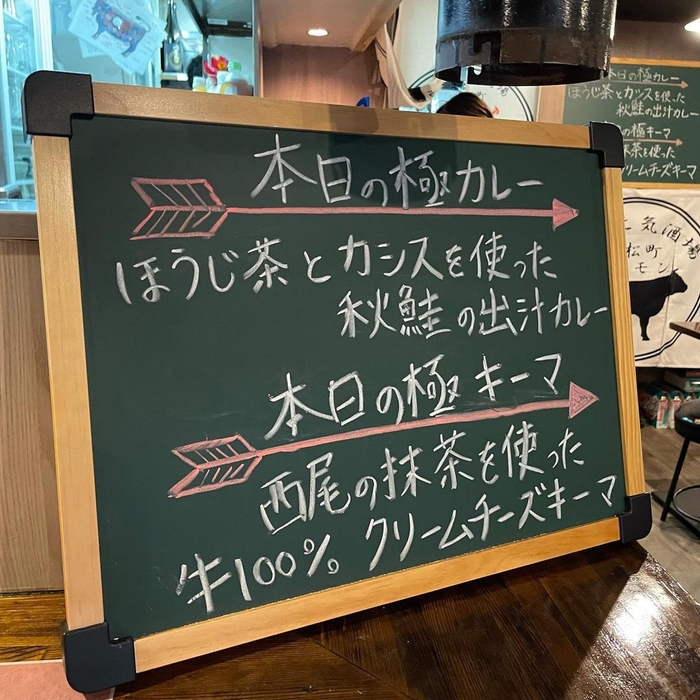 本日の極カレー
ほうじ茶とカシスを使った
秋鮭の出汁カレー
本日の極キーマ
西尾の抹茶を使った
牛100% クリームチーズキーマ
本日の極カレー
ほうじ茶とカシスを使った
秋鮭の出汁カレー
の極キーマ
抹茶を使った
リームチーズキーマ
気酒場
松町
モン